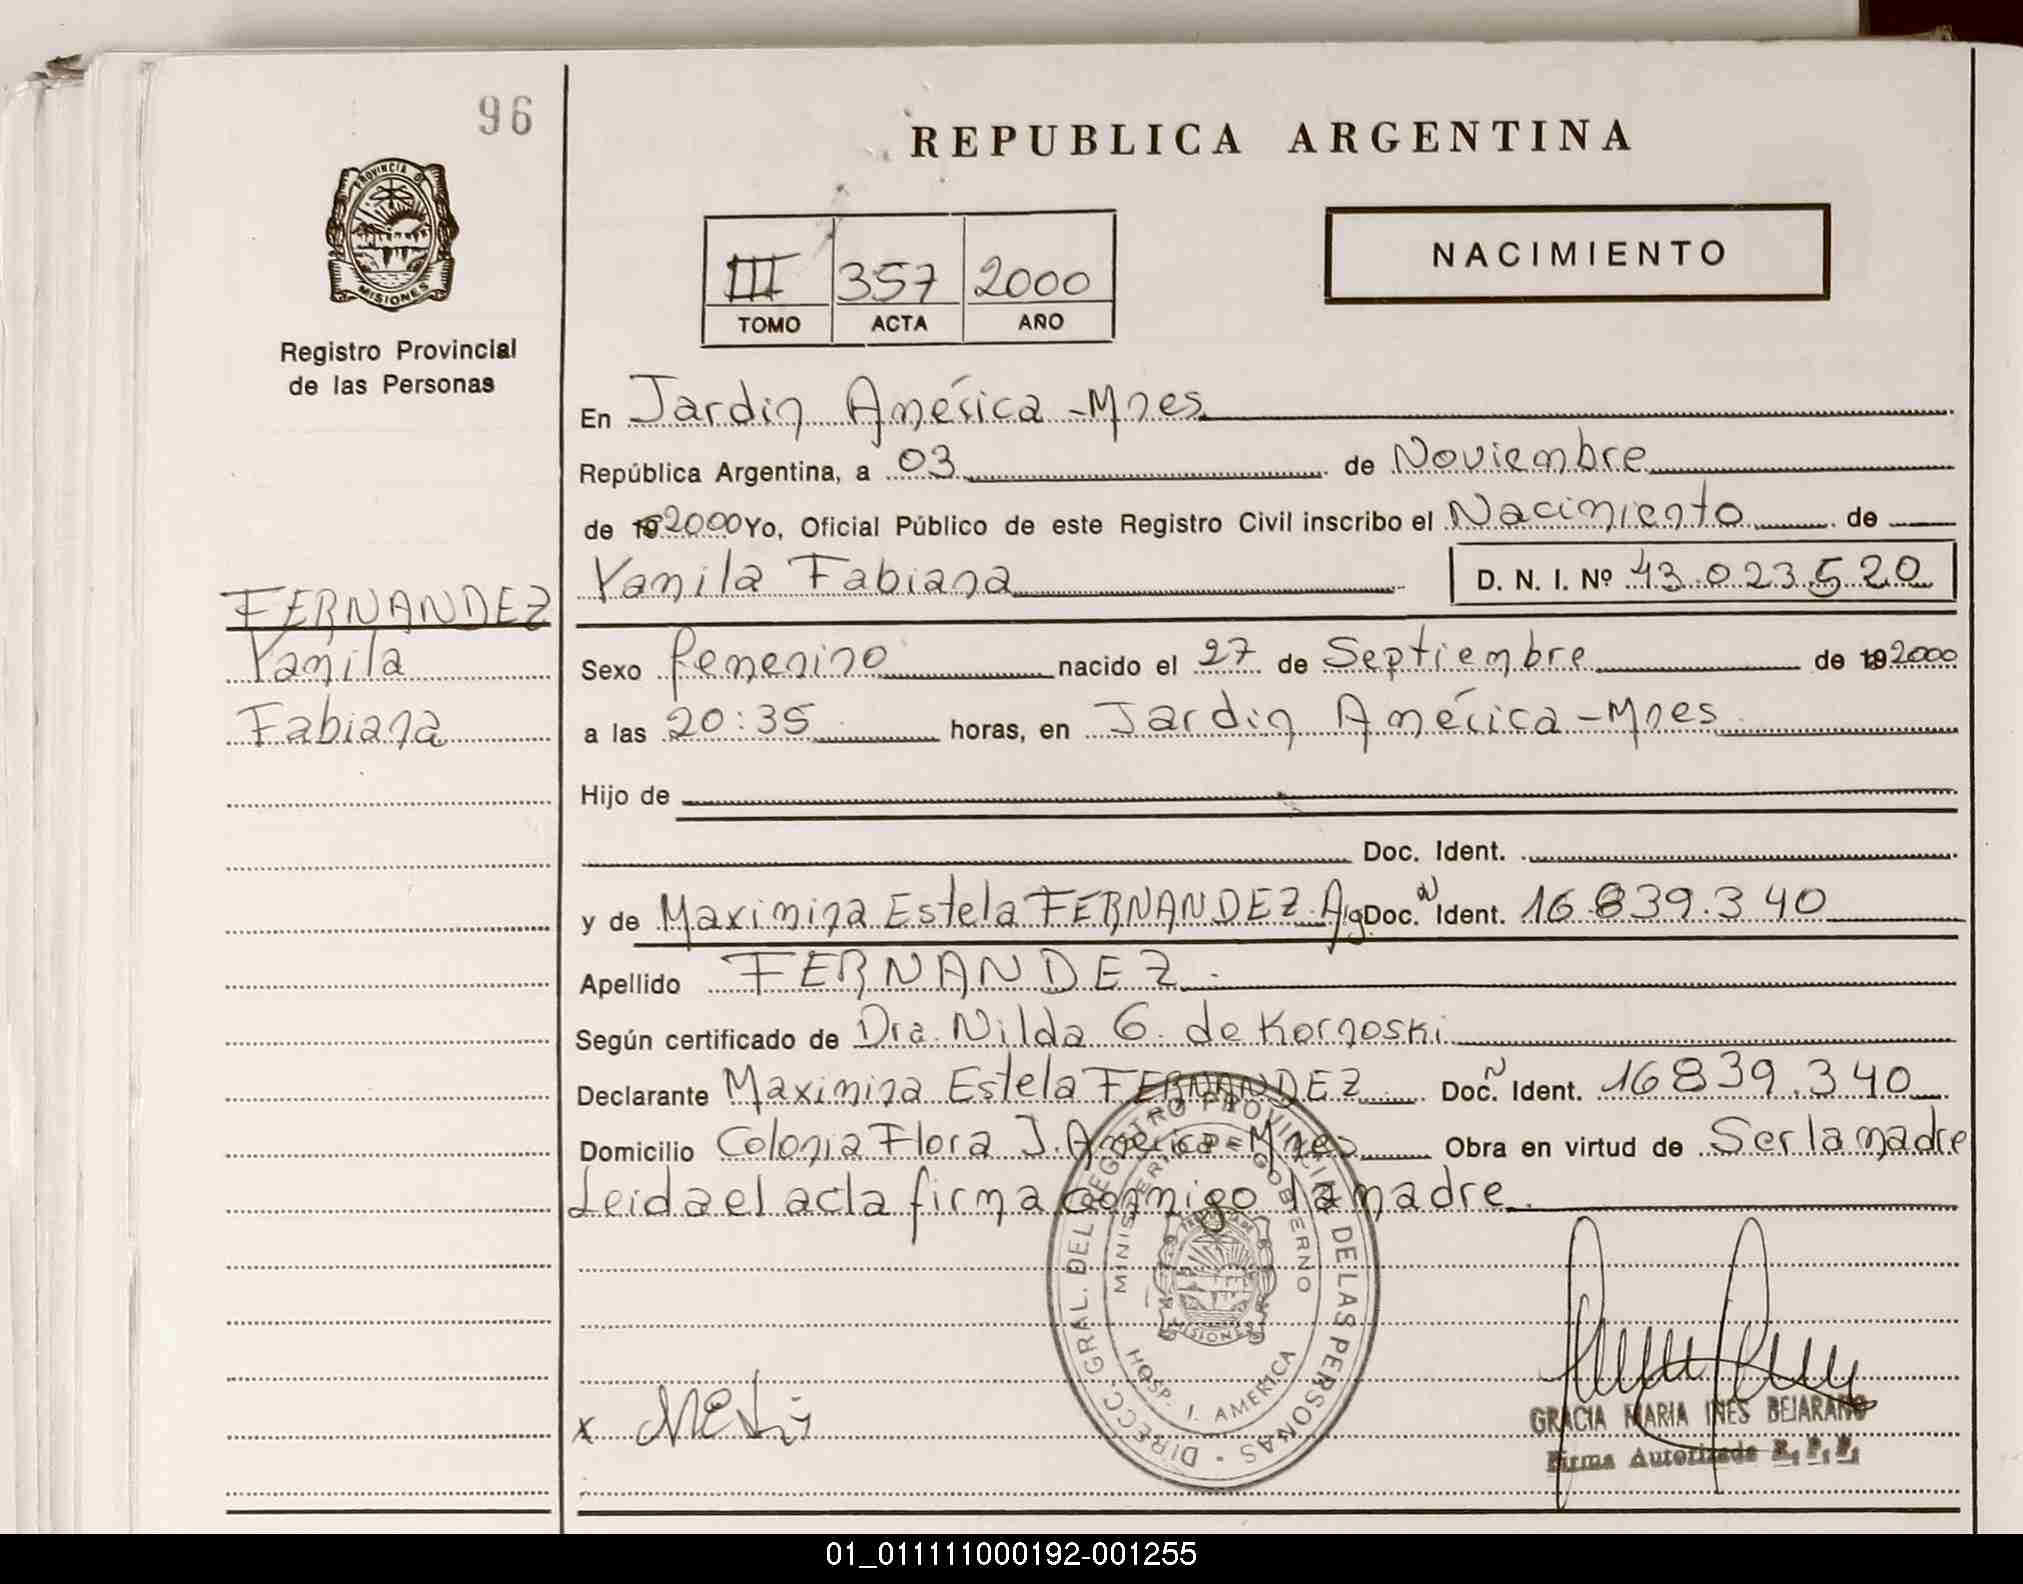 96
REPUBLICA ARGENTINA
PROVINCIA DE
MISIONES
Registro Provincial
de las Personas
NACIMIENTO
III 357 2000
TOMO ACTA AÑO
En Jardin América - Mnes
República Argentina, a 03 de Noviembre
de 19 2000 Yo, Oficial Público de este Registro Civil inscribo el Nacimiento de
Yamila Fabiana D. N. I. Nº 43.023.520
FERNANDEZ
Yamila
Fabiana
Sexo femenino nacido el 27 de Septiembre de 19 2000
a las 20:35 horas, en Jardin América - Mnes
Hijo de
Doc. Ident.
y de Maximina Estela FERNANDEZ. Arg. Doc. N Ident. 16.839.340
Apellido FERNANDEZ.
Según certificado de Dra. Nilda G. de Kornoski
Declarante Maximina Estela FERNANDEZ Doc. N Ident. 16839.340
Domicilio Colonia Flora J. América - Mnes Obra en virtud de Ser la madre
Leida el acta firma conmigo la madre.
DIRECC. GRAL. DEL REGISTRO PROVINCIAL DE LAS PERSONAS
MINISTERIO DE GOBIERNO
MISIONES
HOSP. J. AMERICA
x
GRACIA MARIA INES BEJARANO
Firma Autorizada R. P. P.
01_011111000192-001255